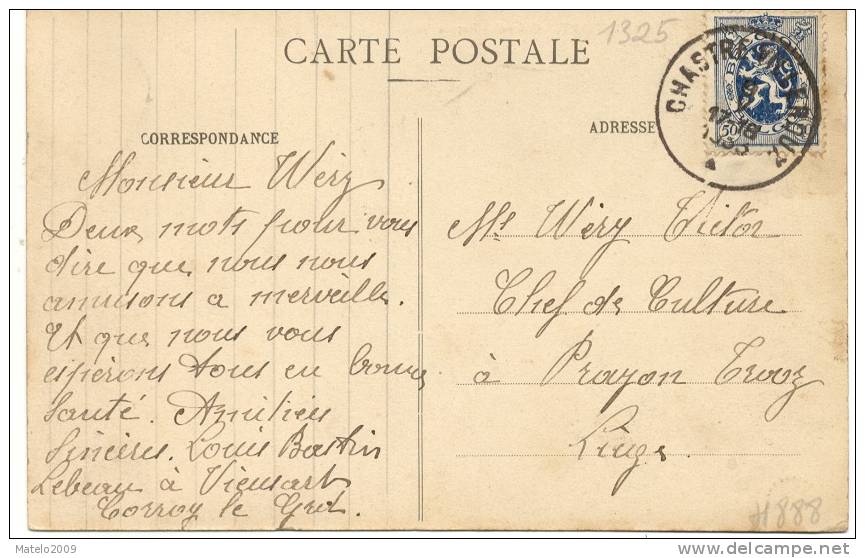 1325
CARTE POSTALE
CORRESPONDANCE
ADRESSE
CHASTRE-VILLEROUX
BELGI
50
Monsieur Wéry
Deux mots pour vous
dire que nous nous
amusons a merveille.
Et que nous vous
espérons tous en bonne
Santé. Amitiés
Sincères. Louis Bastin
Lebeau à Vieusart
Corroy le Grd.
Mr Wéry Victor
Chef de Culture
à Prayon Trooz
Liège
H888
Matelo2009
www.delcampe.net